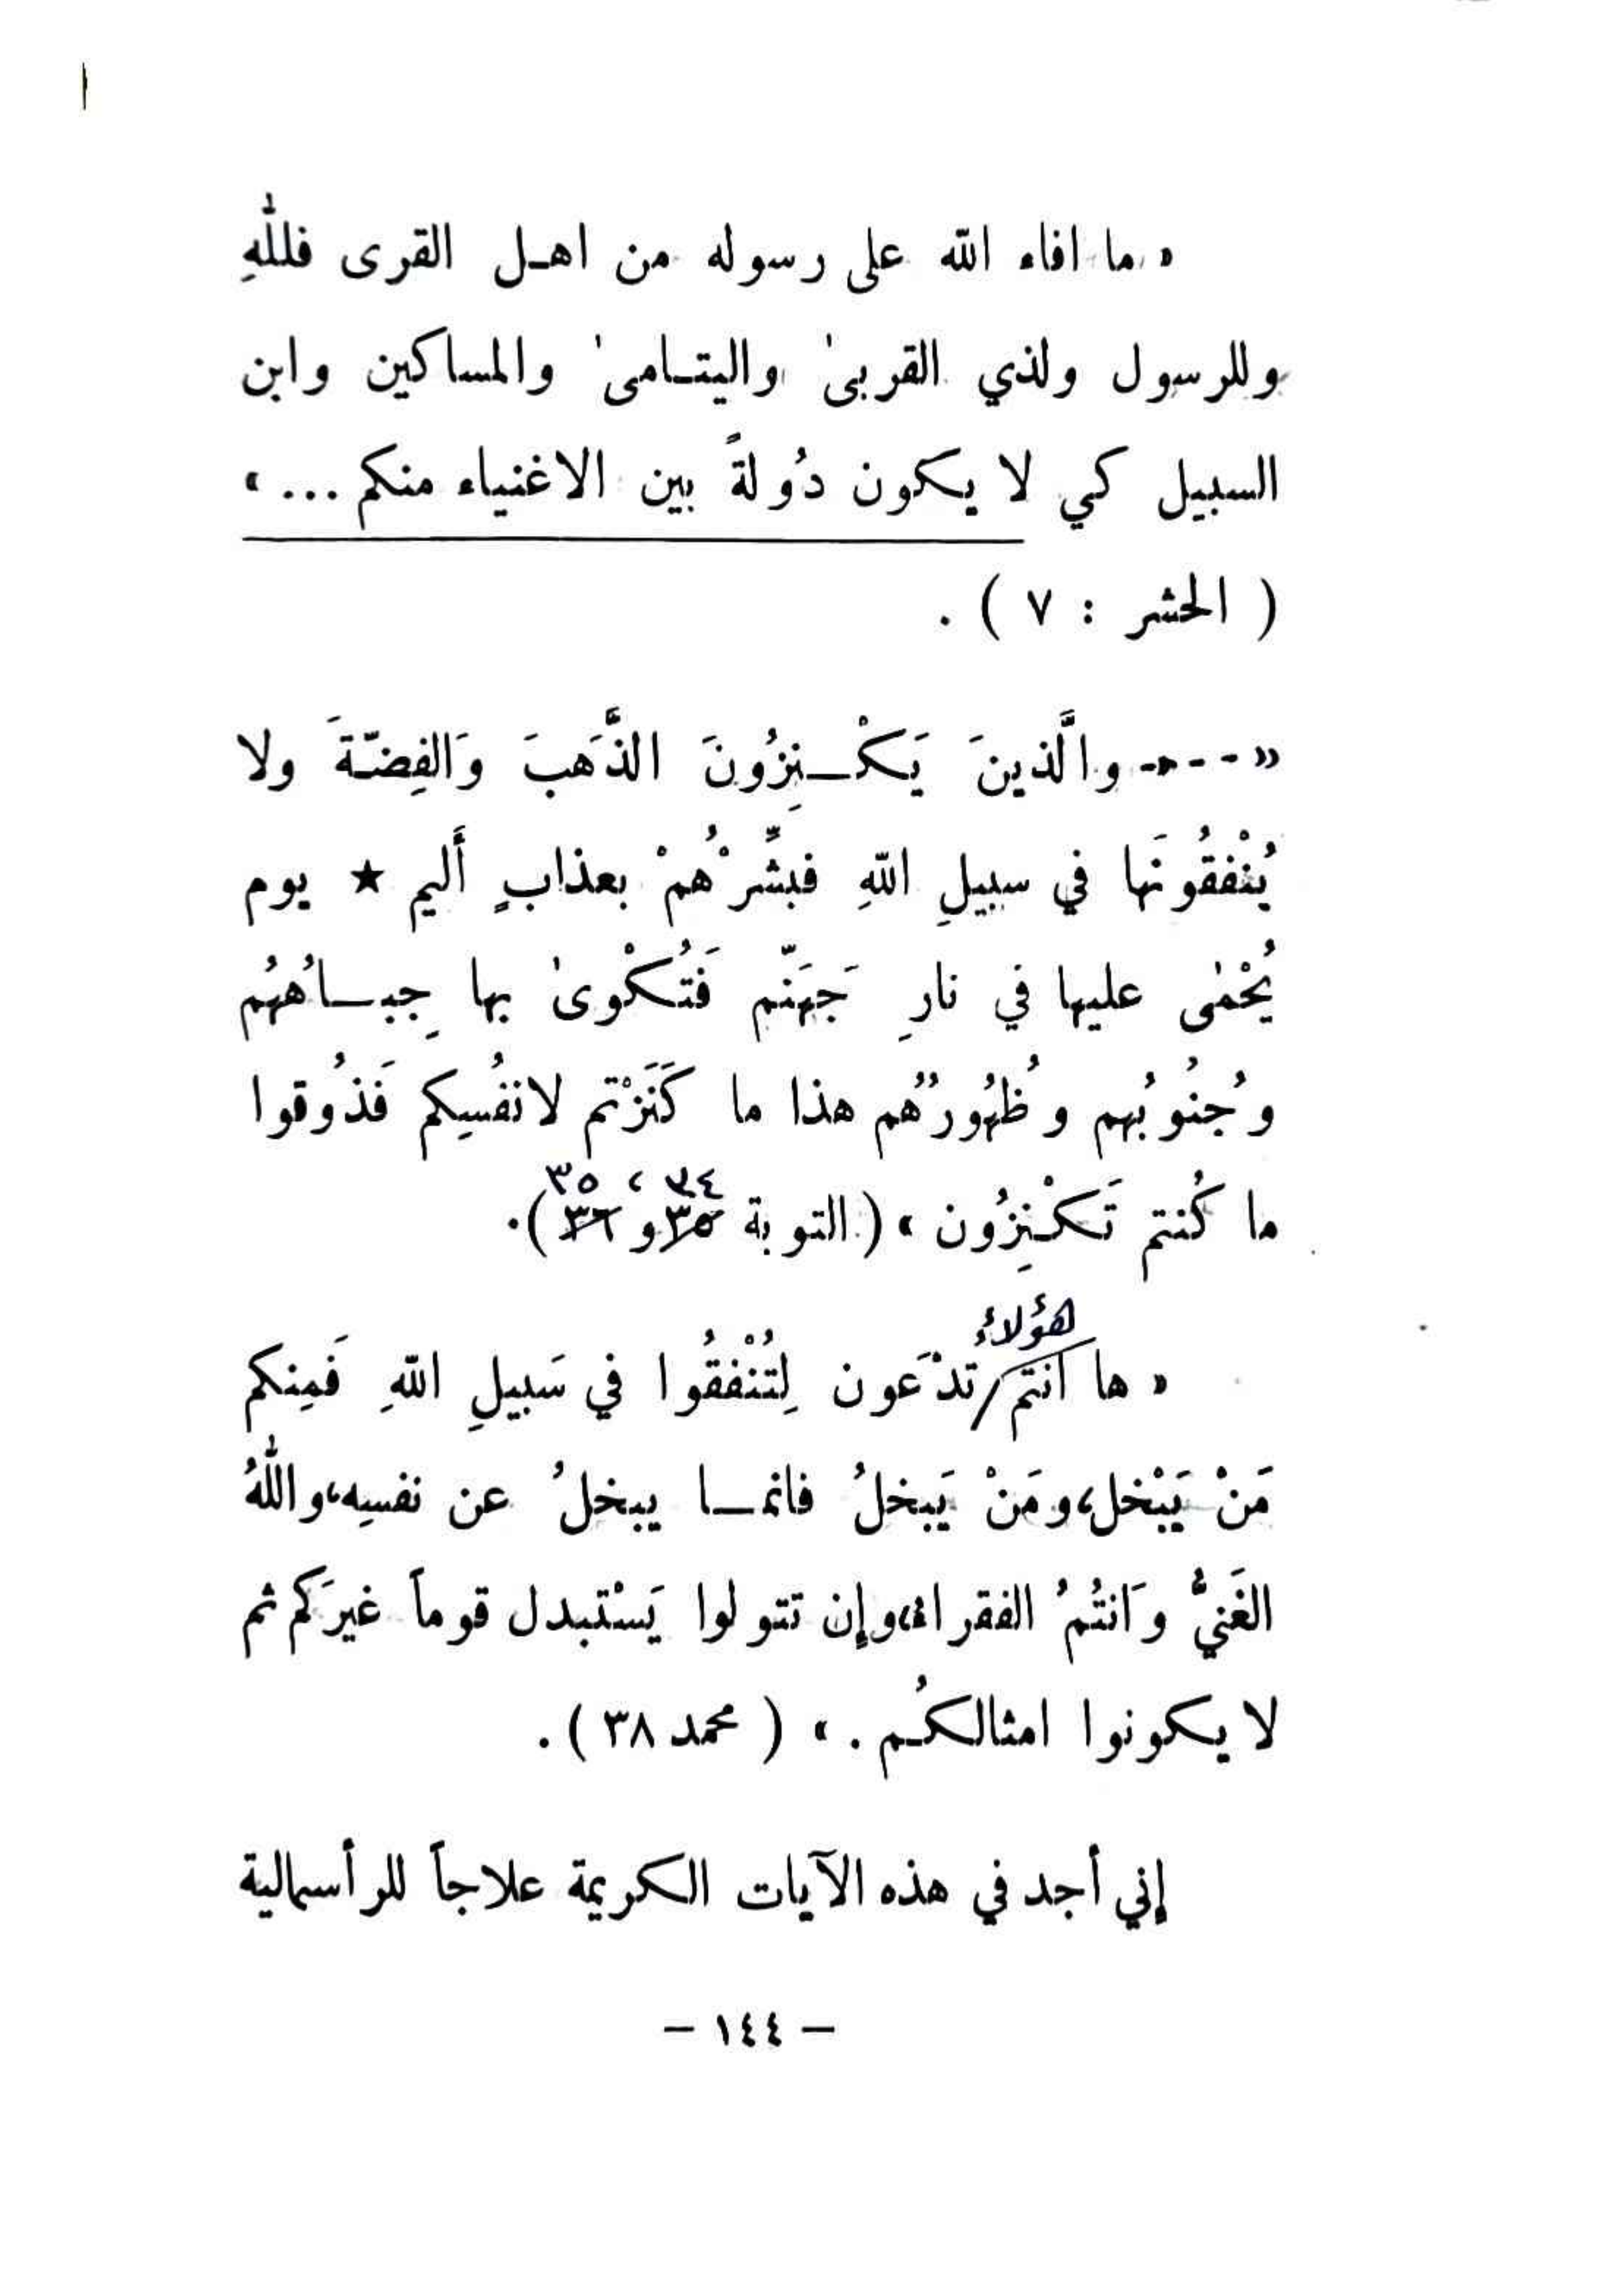 « ما افاء الله على رسوله من اهل القرى فللهِ
وللرسول ولذي القربىٰ واليتامىٰ والمساكين وابن
السبيل كي لا يكون دُولةً بين الاغنياء منكم ... »
( الحشر : ٧ ) .
« --- والَّذينَ يَكْنِزُونَ الذَّهَبَ وَالفِضّةَ ولا
يُنْفقُونَها في سبيلِ اللهِ فبشِّرْهُمْ بعذابٍ أَليم ★ يوم
يُحْمٰى عليها في نارِ جَهَنّم فَتُكْوىٰ بها جِباهُهُم
وجُنُوبُهم وظُهُورُهُم هذا ما كَنَزْتم لانفُسِكم فَذُوقوا
٣٤ ، ٣٥
ما كُنتم تَكْنِزُون » ( التوبة ٣٥ و ٣٦ ) .
هؤلاءُ
« ها انتم / تدْعَون لِتُنْفقُوا في سَبيلِ اللهِ فَمِنكم
مَنْ يَبْخل، ومَنْ يَبخلُ فانما يبخلُ عن نفسِه، واللهُ
الغَنيُّ وَانتُمُ الفقراء، وإن تتولوا يَسْتبدل قوماً غيرَكم ثم
لا يكونوا امثالكُم . » ( محمد ٣٨ ) .
إني أجد في هذه الآيات الكريمة علاجاً للرأسمالية
– ١٤٤ –